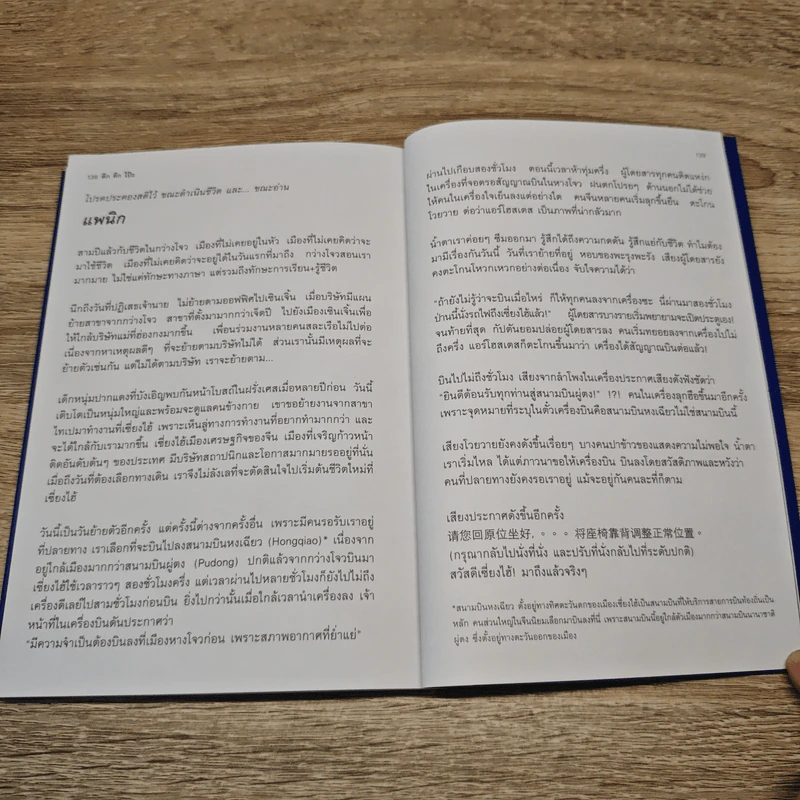 138 ติก ติก โป๊ะ
โปรดประคองสติไว้ ขณะดำเนินชีวิต และ... ขณะอ่าน
แพนิก
สามปีแล้วกับชีวิตในกว่างโจว เมืองที่ไม่เคยอยู่ในหัว เมืองที่ไม่เคยคิดว่าจะ
มาใช้ชีวิต เมืองที่ไม่เคยคิดว่าจะอยู่ได้ในวันแรกที่มาถึง กว่างโจวสอนเรา
มากมาย ไม่ใช่แค่ทักษะทางภาษา แต่รวมถึงทักษะการเรียน+รู้ชีวิต
นึกถึงวันที่ปฏิเสธเจ้านาย ไม่ย้ายตามออฟฟิศไปเซินเจิ้น เมื่อบริษัทมีแผน
ย้ายสาขาจากกว่างโจว สาขาที่ตั้งมามากกว่าเจ็ดปี ไปยังเมืองเซินเจิ้นเพื่อ
ให้ใกล้บริษัทแม่ที่ฮ่องกงมากขึ้น เพื่อนร่วมงานหลายคนสละเรือไม่ไปต่อ
เนื่องจากหาเหตุผลดีๆ ที่จะย้ายตามบริษัทไม่ได้ ส่วนเรานั้นมีเหตุผลที่จะ
ย้ายตัวเช่นกัน แต่ไม่ได้ตามบริษัท เราจะย้ายตาม...
เด็กหนุ่มปากแดงที่บังเอิญพบกันหน้าโบสถ์ในฝรั่งเศสเมื่อหลายปีก่อน วันนี้
เติบโตเป็นหนุ่มใหญ่และพร้อมจะดูแลคนข้างกาย เขาขอย้ายงานจากสาขา
ไทเปมาทำงานที่เซี่ยงไฮ้ เพราะเห็นลู่ทางการทำงานที่อยากทำมากกว่า และ
จะได้ใกล้กับเรามากขึ้น เซี่ยงไฮ้เมืองเศรษฐกิจของจีน เมืองที่เจริญก้าวหน้า
ติดอันดับต้นๆ ของประเทศ มีบริษัทสถาปนิกและโอกาสมากมายรออยู่ที่นั่น
เมื่อถึงวันที่ต้องเลือกทางเดิน เราจึงไม่ลังเลที่จะตัดสินใจไปเริ่มต้นชีวิตใหม่ที่
เซี่ยงไฮ้
วันนี้เป็นวันย้ายตัวอีกครั้ง แต่ครั้งนี้ต่างจากครั้งอื่น เพราะมีคนรอรับเราอยู่
ที่ปลายทาง เราเลือกที่จะบินไปลงสนามบินหงเฉียว (Hongqiao)* เนื่องจาก
อยู่ใกล้เมืองมากกว่าสนามบินผู่ตง (Pudong) ปกติแล้วจากกว่างโจวบินมา
เซี่ยงไฮ้ใช้เวลาราวๆ สองชั่วโมงครึ่ง แต่เวลาผ่านไปหลายชั่วโมงก็ยังไปไม่ถึง
เครื่องดีเลย์ไปสามชั่วโมงก่อนบิน ยิ่งไปกว่านั้นเมื่อใกล้เวลานำเครื่องลง เจ้า
หน้าที่ในเครื่องบินดันประกาศว่า
"มีความจำเป็นต้องบินลงที่เมืองหางโจวก่อน เพราะสภาพอากาศที่ย่ำแย่"
139
ผ่านไปเกือบสองชั่วโมง ตอนนี้เวลาห้าทุ่มครึ่ง ผู้โดยสารทุกคนติดแหง่ก
ในเครื่องที่จอดรอสัญญาณบินในหางโจว ฝนตกโปรยๆ ด้านนอกไม่ได้ช่วย
ให้คนในเครื่องใจเย็นลงแต่อย่างใด คนจีนหลายคนเริ่มลุกขึ้นยืน ตะโกน
โวยวาย ต่อว่าแอร์โฮสเตส เป็นภาพที่น่ากลัวมาก
น้ำตาเราค่อยๆ ซึมออกมา รู้สึกได้ถึงความกดดัน รู้สึกแย่กับชีวิต ทำไมต้อง
มามีเรื่องกันวันนี้ วันที่เราย้ายที่อยู่ หอบของพะรุงพะรัง เสียงผู้โดยสารยัง
คงตะโกนโหวกเหวกอย่างต่อเนื่อง จับใจความได้ว่า
"ถ้ายังไม่รู้ว่าจะบินเมื่อไหร่ ก็ให้ทุกคนลงจากเครื่องซะ นี่ผ่านมาสองชั่วโมง
ป่านนี้นั่งรถไฟถึงเซี่ยงไฮ้แล้ว!" ผู้โดยสารบางรายเริ่มพยายามจะเปิดประตูเอง!
จนท้ายที่สุด กัปตันยอมปล่อยผู้โดยสารลง คนเริ่มทยอยลงจากเครื่องไปไม่
ถึงครึ่ง แอร์โฮสเตสก็ตะโกนขึ้นมาว่า เครื่องได้สัญญาณบินต่อแล้ว!
บินไปไม่ถึงชั่วโมง เสียงจากลำโพงในเครื่องประกาศเสียงดังฟังชัดว่า
"ยินดีต้อนรับทุกท่านสู่สนามบินผู่ตง!" !?! คนในเครื่องลุกฮือขึ้นมาอีกครั้ง
เพราะจุดหมายที่ระบุในตั๋วเครื่องบินคือสนามบินหงเฉียวไม่ใช่สนามบินนี้
เสียงโวยวายยังคงดังขึ้นเรื่อยๆ บางคนปาข้าวของแสดงความไม่พอใจ น้ำตา
เราเริ่มไหล ได้แต่ภาวนาขอให้เครื่องบิน บินลงโดยสวัสดิภาพและหวังว่า
คนที่ปลายทางยังคงรอเราอยู่ แม้จะอยู่กันคนละที่ก็ตาม
เสียงประกาศดังขึ้นอีกครั้ง
请您回原位坐好，。。。将座椅靠背调整正常位置。
(กรุณากลับไปนั่งที่นั่ง และปรับที่นั่งกลับไปที่ระดับปกติ)
สวัสดีเซี่ยงไฮ้! มาถึงแล้วจริงๆ
*สนามบินหงเฉียว ตั้งอยู่ทางทิศตะวันตกของเมืองเซี่ยงไฮ้เป็นสนามบินที่ให้บริการสายการบินท้องถิ่นเป็น
หลัก คนส่วนใหญ่ในจีนนิยมเลือกมาบินลงที่นี่ เพราะสนามบินนี้อยู่ใกล้ตัวเมืองมากกว่าสนามบินนานาชาติ
ผู่ตง ซึ่งตั้งอยู่ทางตะวันออกของเมือง